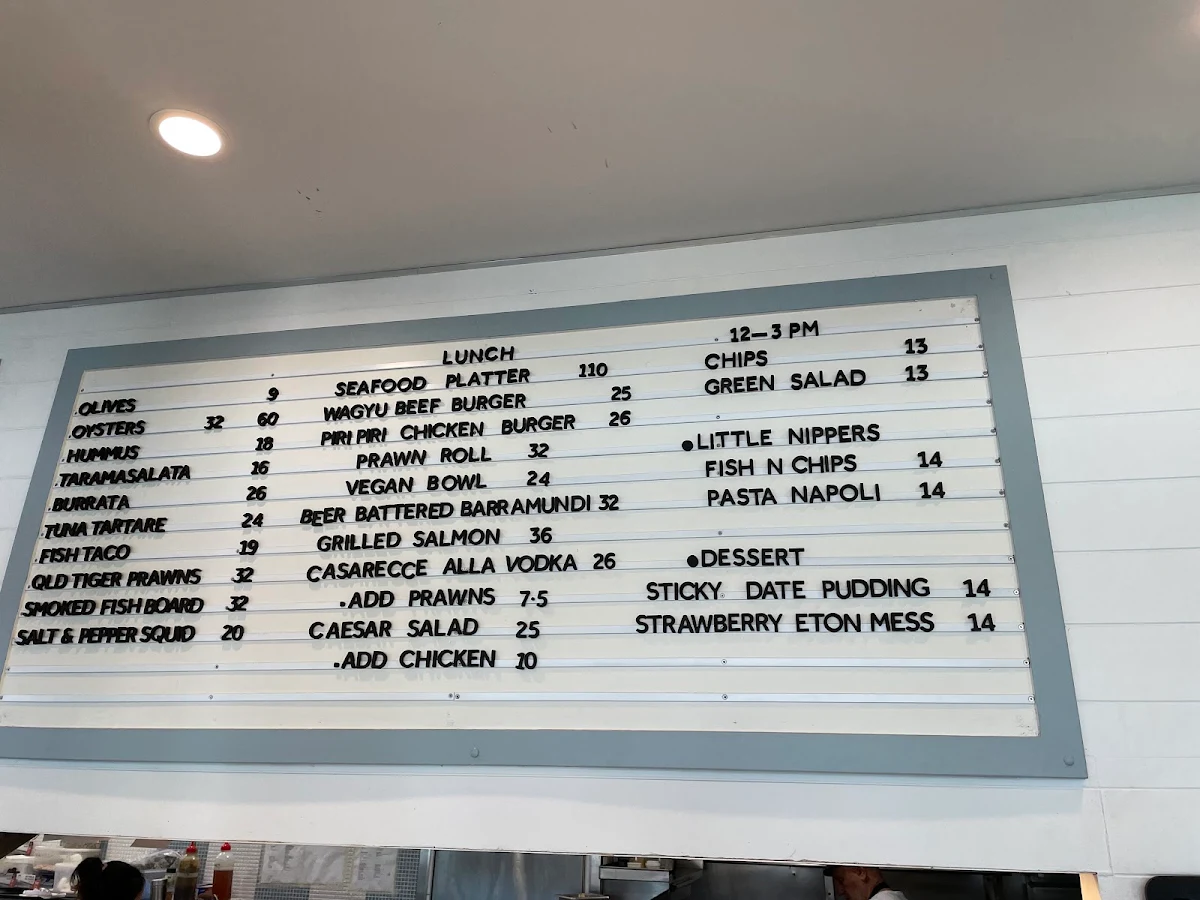 LUNCH
12—3 PM
.OLIVES 9
.OYSTERS 32 60
.HUMMUS 18
.TARAMASALATA 16
.BURRATA 26
.TUNA TARTARE 24
.FISH TACO 19
.QLD TIGER PRAWNS 32
SMOKED FISH BOARD 32
SALT & PEPPER SQUID 20
SEAFOOD PLATTER 110
WAGYU BEEF BURGER 25
PIRI PIRI CHICKEN BURGER 26
PRAWN ROLL 32
VEGAN BOWL 24
BEER BATTERED BARRAMUNDI 32
GRILLED SALMON 36
CASARECCE ALLA VODKA 26
.ADD PRAWNS 7.5
CAESAR SALAD 25
.ADD CHICKEN 10
CHIPS 13
GREEN SALAD 13
●LITTLE NIPPERS
FISH N CHIPS 14
PASTA NAPOLI 14
●DESSERT
STICKY DATE PUDDING 14
STRAWBERRY ETON MESS 14